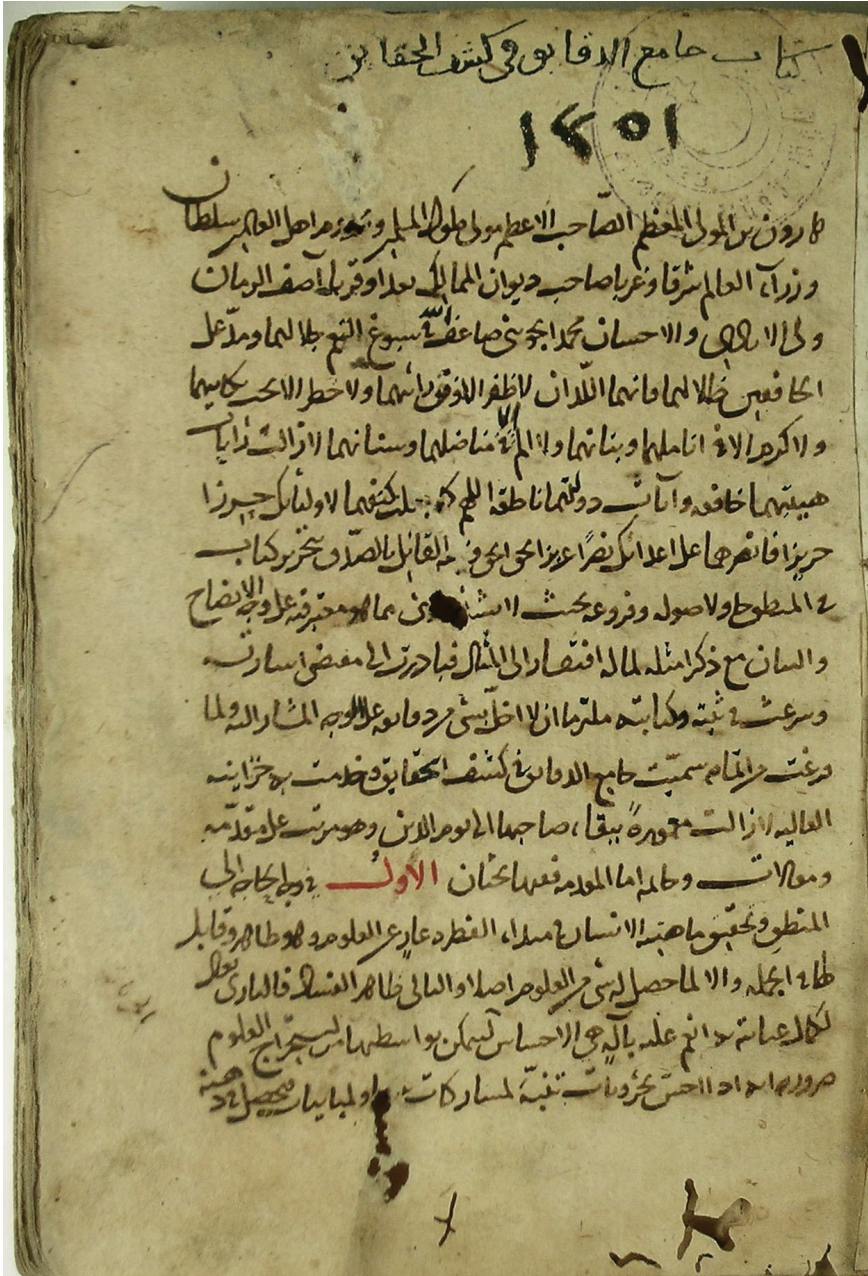 كتاب جامع الدقايق في كشف الحقايق
١٣٥١
هارون بن المولى المعظم الصّاحب الاعظم مولى ملوك اهل العالم سلطان
وزراء العالم شرقا وغربا صاحب ديوان الممالك آصف الزمان
ولى الايادى والاحسان محمد الجوينى ضاعف الله سبوغ النعم جلالهما ومدّ على
الخافقين ظلالهما فانهما اللّذان لا ظفر الا فوق ولا خطر الا تحت
ولا كرم الا فى اناملهما وبنانهما ولا الم الا فى مناضلهما وسنانهما لا زالت رايات
هيبتهما خافقة وآيات دولتهما ناطقة اللهم كما جعلت كنفهما لاوليائك حرزا
حريزا فانصرهما على اعدائك نصرًا عزيزا بتحرير كتاب
فى المنطق حاو لاصوله وفروعه بحيث لا يشذ مما معرفته على وجه الايضاح
والبيان مع ذكر امثلة لما له افتقار الى المثال فبادرت الى مقتضى اشارته
وشرعت فى ثبته وكتابته ملتزما ان لا اخلّ بشئ من دقايقه على الوجه المشار اليه ولما
فرغت من اتمامه سميّته جامع الدقايق فى كشف الحقايق وخدمت به خزانته
العالية لا زالت معمورةً ببقاء صاحبها الى يوم الدين وهو مرتب على مقدّمة
ومقالات وخاتمة اما المقدمة ففيها بحثان الاول فى وجه الحاجة الى
المنطق وتحقيق ماهيته الانسان فى مبداء الفطرة عار عن العلوم وهو ظاهر وقابل
لها فى الجملة والا لما حصل له شئ من العلوم اصلا والتالى ظاهر الفساد فالبارى تعالى
لكمال عنايته به انعم عليه بآلةٍ هى الاحساس ليمكن بواسطتها من استخراج العلوم
اذا احسّ بجزويات تنبّه لمشاركات ومباينات فيحصل